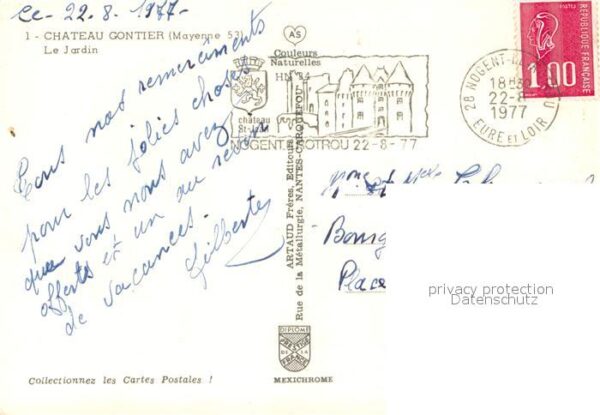 Ce - 22.8.1977 -
1 - CHATEAU GONTIER (Mayenne 53)
Le Jardin
Tous nos remerciements
pour les jolies choses
que vous nous avez
offerts et un au revoir
de vacances.
Gilberte
AS
Couleurs
Naturelles
HN 34
château
St-Jean
NOGENT ROTROU 22-8-77
ARTAUD Frères, Editeurs
Rue de la Métallurgie, NANTES-CARQUEFOU
DIPLOME
PRESTIGE
DE LA
FRANCE
MEXICHROME
Collectionnez les Cartes Postales !
REPUBLIQUE FRANÇAISE
POSTES
1,00
28 NOGENT-
18H30
22-8
1977
EURE et LOIR
Place
privacy protection
Datenschutz